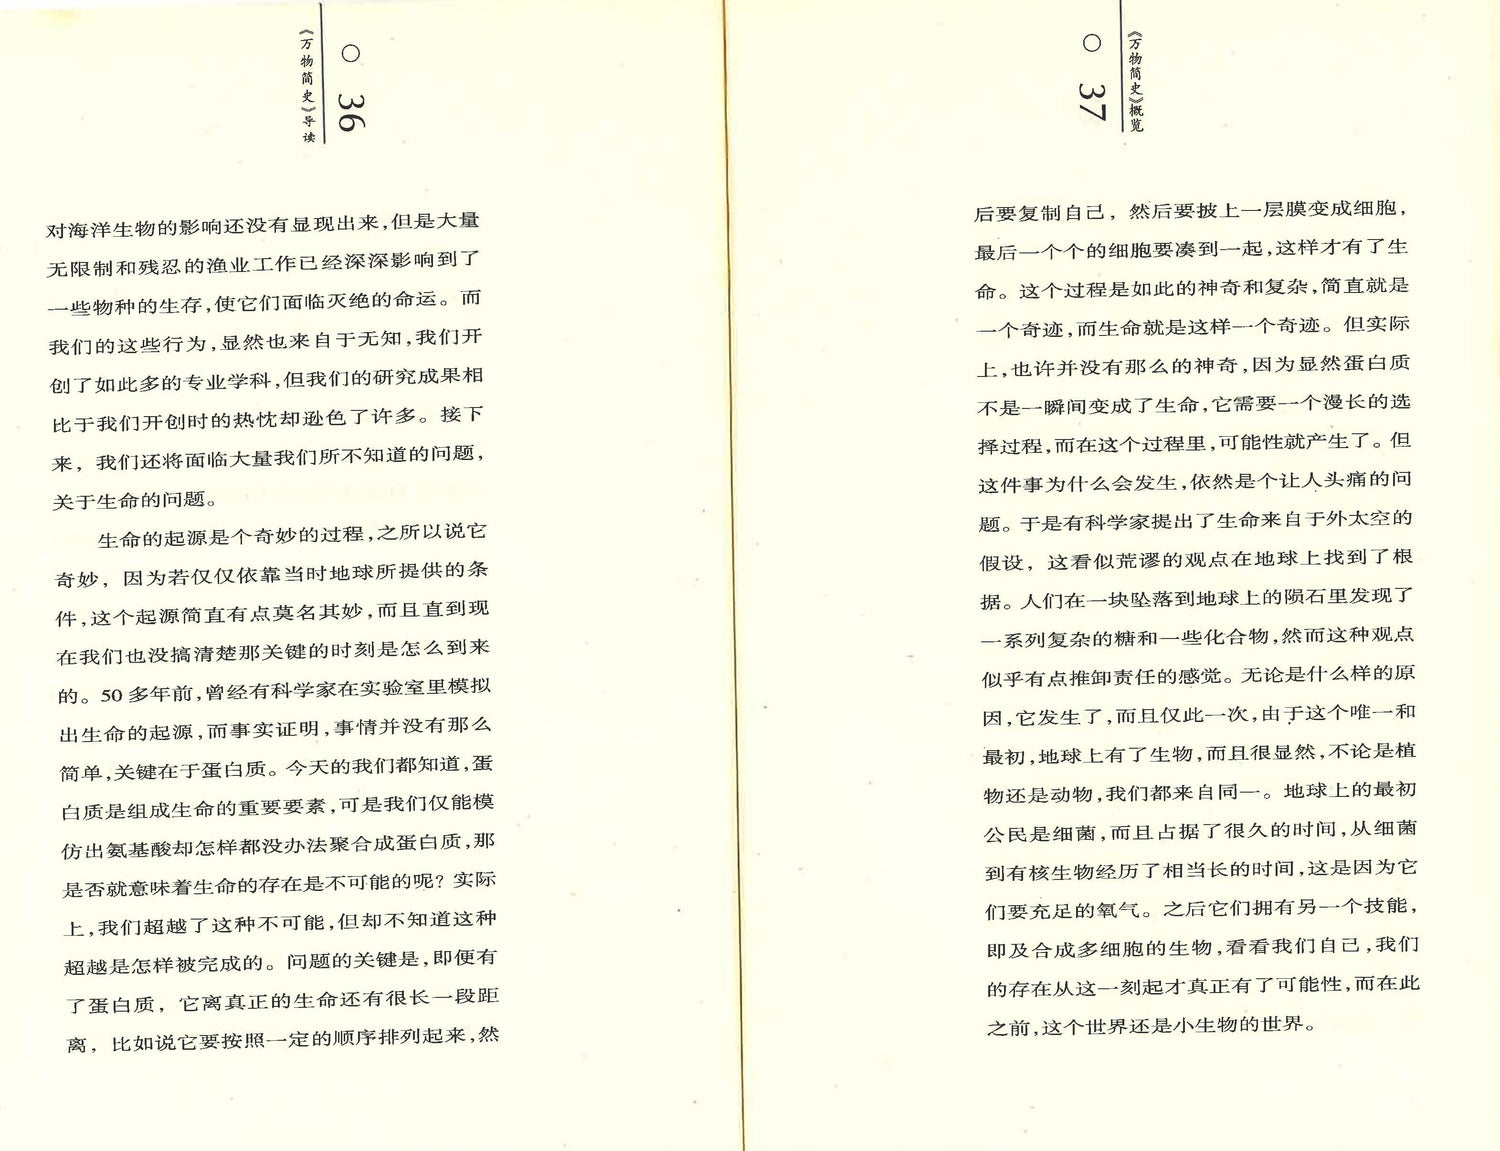 《万物简史》导读
36
对海洋生物的影响还没有显现出来,但是大量
无限制和残忍的渔业工作已经深深影响到了
一些物种的生存,使它们面临灭绝的命运。而
我们的这些行为,显然也来自于无知,我们开
创了如此多的专业学科,但我们的研究成果相
比于我们开创时的热忱却逊色了许多。接下
来，我们还将面临大量我们所不知道的问题,
关于生命的问题。
生命的起源是个奇妙的过程,之所以说它
奇妙，因为若仅仅依靠当时地球所提供的条
件,这个起源简直有点莫名其妙,而且直到现
在我们也没搞清楚那关键的时刻是怎么到来
的。50 多年前,曾经有科学家在实验室里模拟
出生命的起源,而事实证明,事情并没有那么
简单,关键在于蛋白质。今天的我们都知道,蛋
白质是组成生命的重要要素,可是我们仅能模
仿出氨基酸却怎样都没办法聚合成蛋白质,那
是否就意味着生命的存在是不可能的呢? 实际
上,我们超越了这种不可能,但却不知道这种
超越是怎样被完成的。问题的关键是,即便有
了蛋白质，它离真正的生命还有很长一段距
离，比如说它要按照一定的顺序排列起来,然
《万物简史》概览
37
后要复制自己，然后要披上一层膜变成细胞,
最后一个个的细胞要凑到一起,这样才有了生
命。这个过程是如此的神奇和复杂,简直就是
一个奇迹,而生命就是这样一个奇迹。但实际
上,也许并没有那么的神奇,因为显然蛋白质
不是一瞬间变成了生命,它需要一个漫长的选
择过程,而在这个过程里,可能性就产生了。但
这件事为什么会发生,依然是个让人头痛的问
题。于是有科学家提出了生命来自于外太空的
假设，这看似荒谬的观点在地球上找到了根
据。人们在一块坠落到地球上的陨石里发现了
一系列复杂的糖和一些化合物,然而这种观点
似乎有点推卸责任的感觉。无论是什么样的原
因,它发生了,而且仅此一次,由于这个唯一和
最初,地球上有了生物,而且很显然,不论是植
物还是动物,我们都来自同一。地球上的最初
公民是细菌,而且占据了很久的时间,从细菌
到有核生物经历了相当长的时间,这是因为它
们要充足的氧气。之后它们拥有另一个技能,
即及合成多细胞的生物,看看我们自己,我们
的存在从这一刻起才真正有了可能性,而在此
之前,这个世界还是小生物的世界。